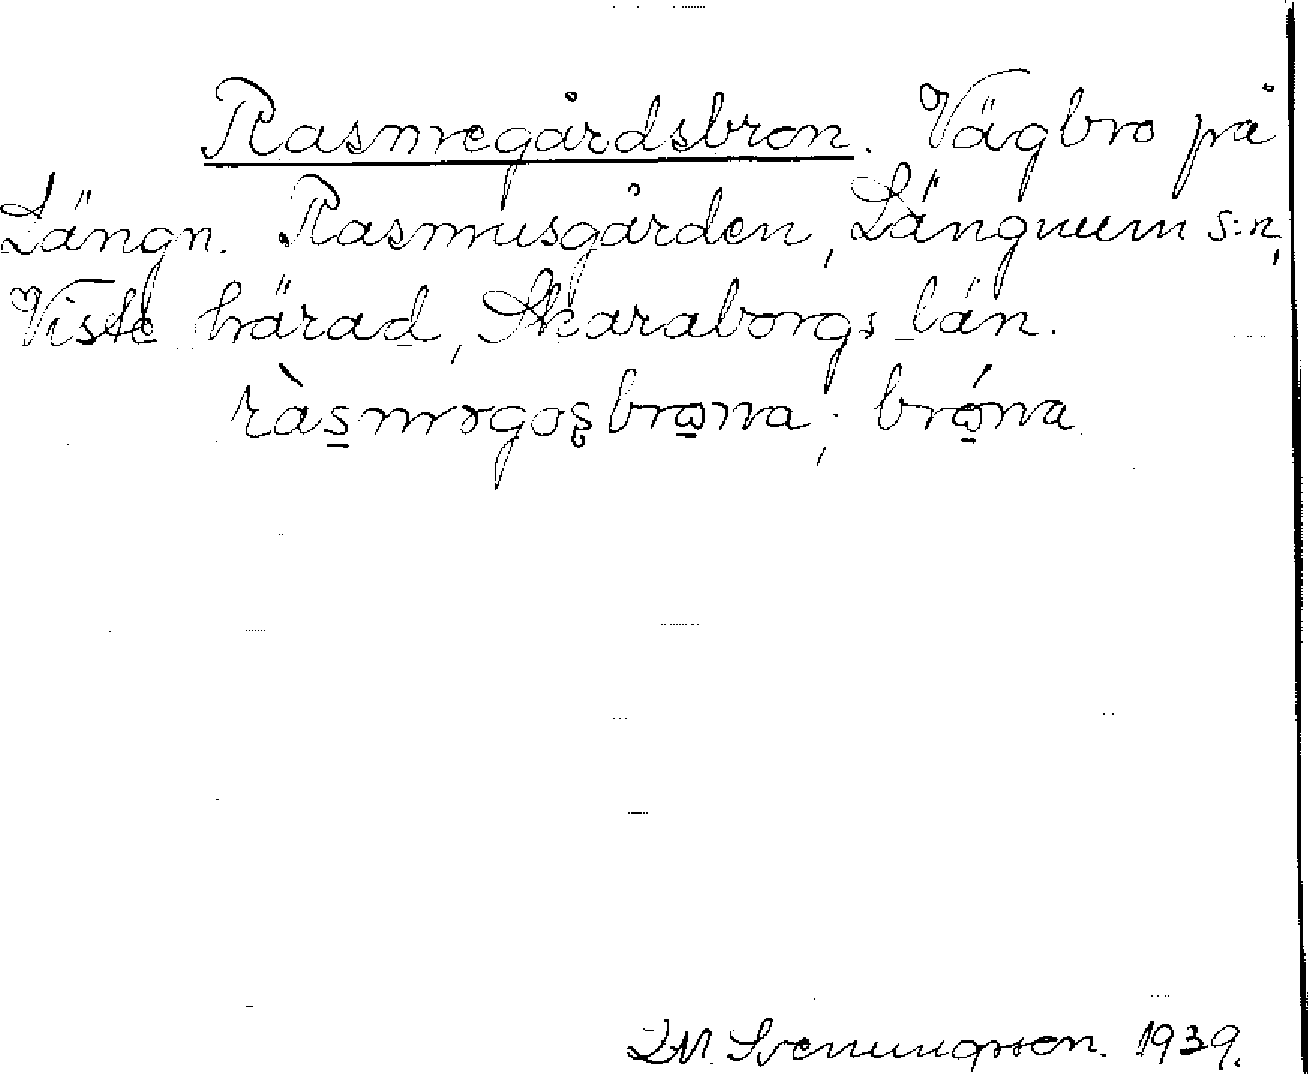 Rasmegårdsbron. Vägbro på
Längn. Rasmusgården, Längnum s:n,
Viste härad, Skaraborgs län.
ràsməgos̥brɷna; brɷ́na
I.M. Svenungsson. 1939.